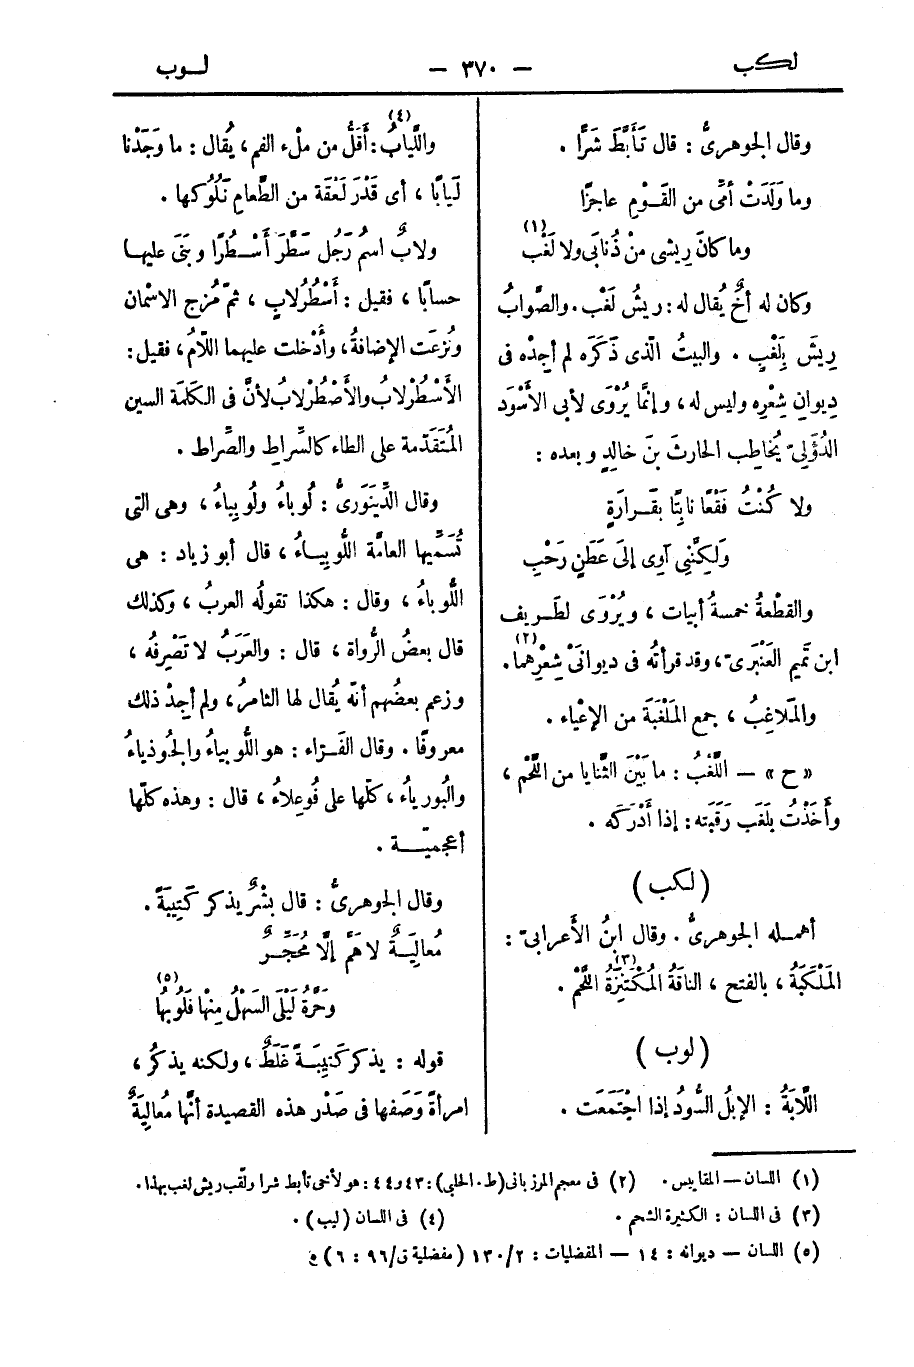 لكب
— ٣٧٠ —
لوب
وقال الجوهرىُّ : قال تَأَبَّطَ شَرًّا .
وما وَلَدَتْ أمِّى من القَوْمِ عاجزًا
وما كانَ رِيشى مِنْ ذُنابَى ولا لَغْب (١)
وكان له أخٌ يُقال له : ريشُ لَغْب . والصَّوابُ
رِيشَ بِلَغْبٍ . والبيتُ الّذى ذَكَرَه لم أجِدْه فى
دِيوانِ شِعْرِه وليس له ، وإنَّما يُرْوَى لأبى الأَسْوَد
الدُؤَلِىّ يُخاطِب الحارثَ بنَ خالدٍ وبعده :
ولا كُنْتُ فَقْعًا نابِتًا بقَرارَةٍ
وَلَكِنَّنِى آوِى إلىَ عَطَنٍ رَحْبِ
والقطْعةُ خمسةُ أبيات ، ويُرْوَى لطَرِيف
ابن تَميم العَنْبَرىّ ، وقد قرأتُه فى ديوانَىْ شِعْرِهما (٢) .
والمَلاغِبُ ، جمع المَلْغَبَة من الإعْياء .
« ح » — اللَّغْبُ : ما بَيْنَ الثَّنايا من اللَّحْم ،
وأَخَذْتُ بلَغَب رَقَبَته : إذا أَدْرَكَه .
( لكب )
أهمله الجوهرىُّ . وقال ابنُ الأعرابىّ :
المَلْكَبَةُ ، بالفتح ، الناقَةُ المُكْتَنِزَةُ اللَّحْم (٣) .
( لوب )
اللَّابَةُ : الإبلُ السُّودُ إذا اجْتَمَعَت .
واللَّيابُ (٤) : أَقَلُّ من مِلْء الفم ، يُقال : ما وَجَدْنا
لَيابًا ، أى قَدْرَ لَعْقَة من الطَّعامِ نَلُوكها .
ولابٌ اسمُ رَجُل سَطَّرَ أَسْطُرًا وبَنَى عليها
حسابًا ، فقيل : أَسْطُرُلابٍ ، ثمّ مُزِج الاسْمان
ونُزِعَت الإضافةُ ، وأُدْخلت عليهما اللّامُ ، فقيل :
الأَسْطُرْلابُ والأَصْطُرْلابُ لأنَّ فى الكَلمَة السين
المُتَقَدّمة على الطاء كالسِّراطِ والصِّراط .
وقال الدِّينَوَرىُّ : لُوباءُ ولُوبِياءُ ، وهى التى
تُسَمِّيها العامَّة اللُّوبِياءُ ، قال أبو زياد : هى
اللُّوباءُ ، وقال : هكذا تقولُه العربُ ، وكذلك
قال بعضُ الرُّواة ، قال : والعَرَبُ لا تَصْرِفُه ،
وزعم بعضُهم أنّه يُقال لها الثامرُ ، ولم أجِدْ ذلك
معروفًا . وقال الفَرّاء : هو اللُّوبياءُ والجُوذِياءُ
والبُورياءُ ، كلّها على فُوعِلاءُ ، قال : وهذه كلّها
أعجميّة .
وقال الجوهرىُّ : قال بِشْرٌ يذكر كَتِيبَةً .
مُعالِيَةٌ لا هَمَّ إلَّا مُحَجَّرٌ
وحَرَّةُ لَيْلَى السَهْلُ مِنْها فَلُوبُها (٥)
قوله : يذكر كَتِيبَةً غَلَطٌ ، ولكنه يذكُر ،
امرأةً وَصَفها فى صَدْر هذه القصيدة أنَّها مُعالِيَةٌ
(١) اللسان — المقاييس . (٢) فى معجم المرزبانى (ط . الحلبي) : ٤٣ و ٤٤ : هو لأخى تأبط شرا ولقب ريش لغب بهذا .
(٣) فى اللسان : الكثيرة الشحم . (٤) فى اللسان (ليب) .
(٥) اللسان — ديوانه : ١٤ — المفضليات : ٢/١٣٠ (مفضلية ق/٩٦ : ٦)